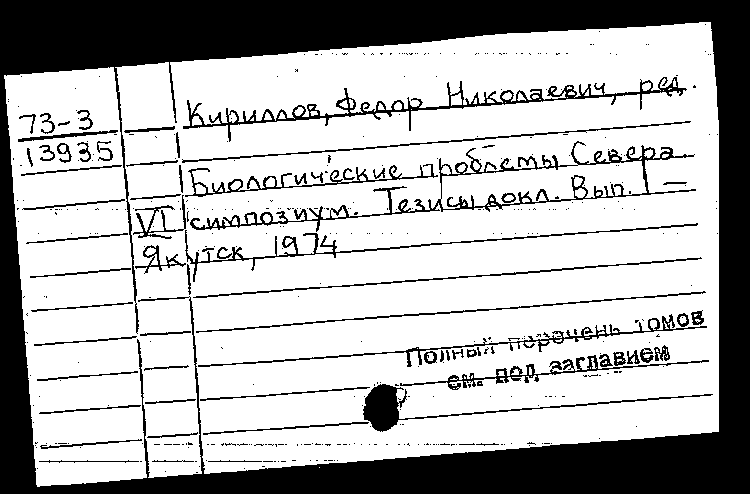 73-3
13935
Кириллов, Федор Николаевич, ред.
Биологические проблемы Севера.
VI симпозиум. Тезисы докл. Вып. 1 —
Якутск, 1974
Полный перечень томов
см. под заглавием